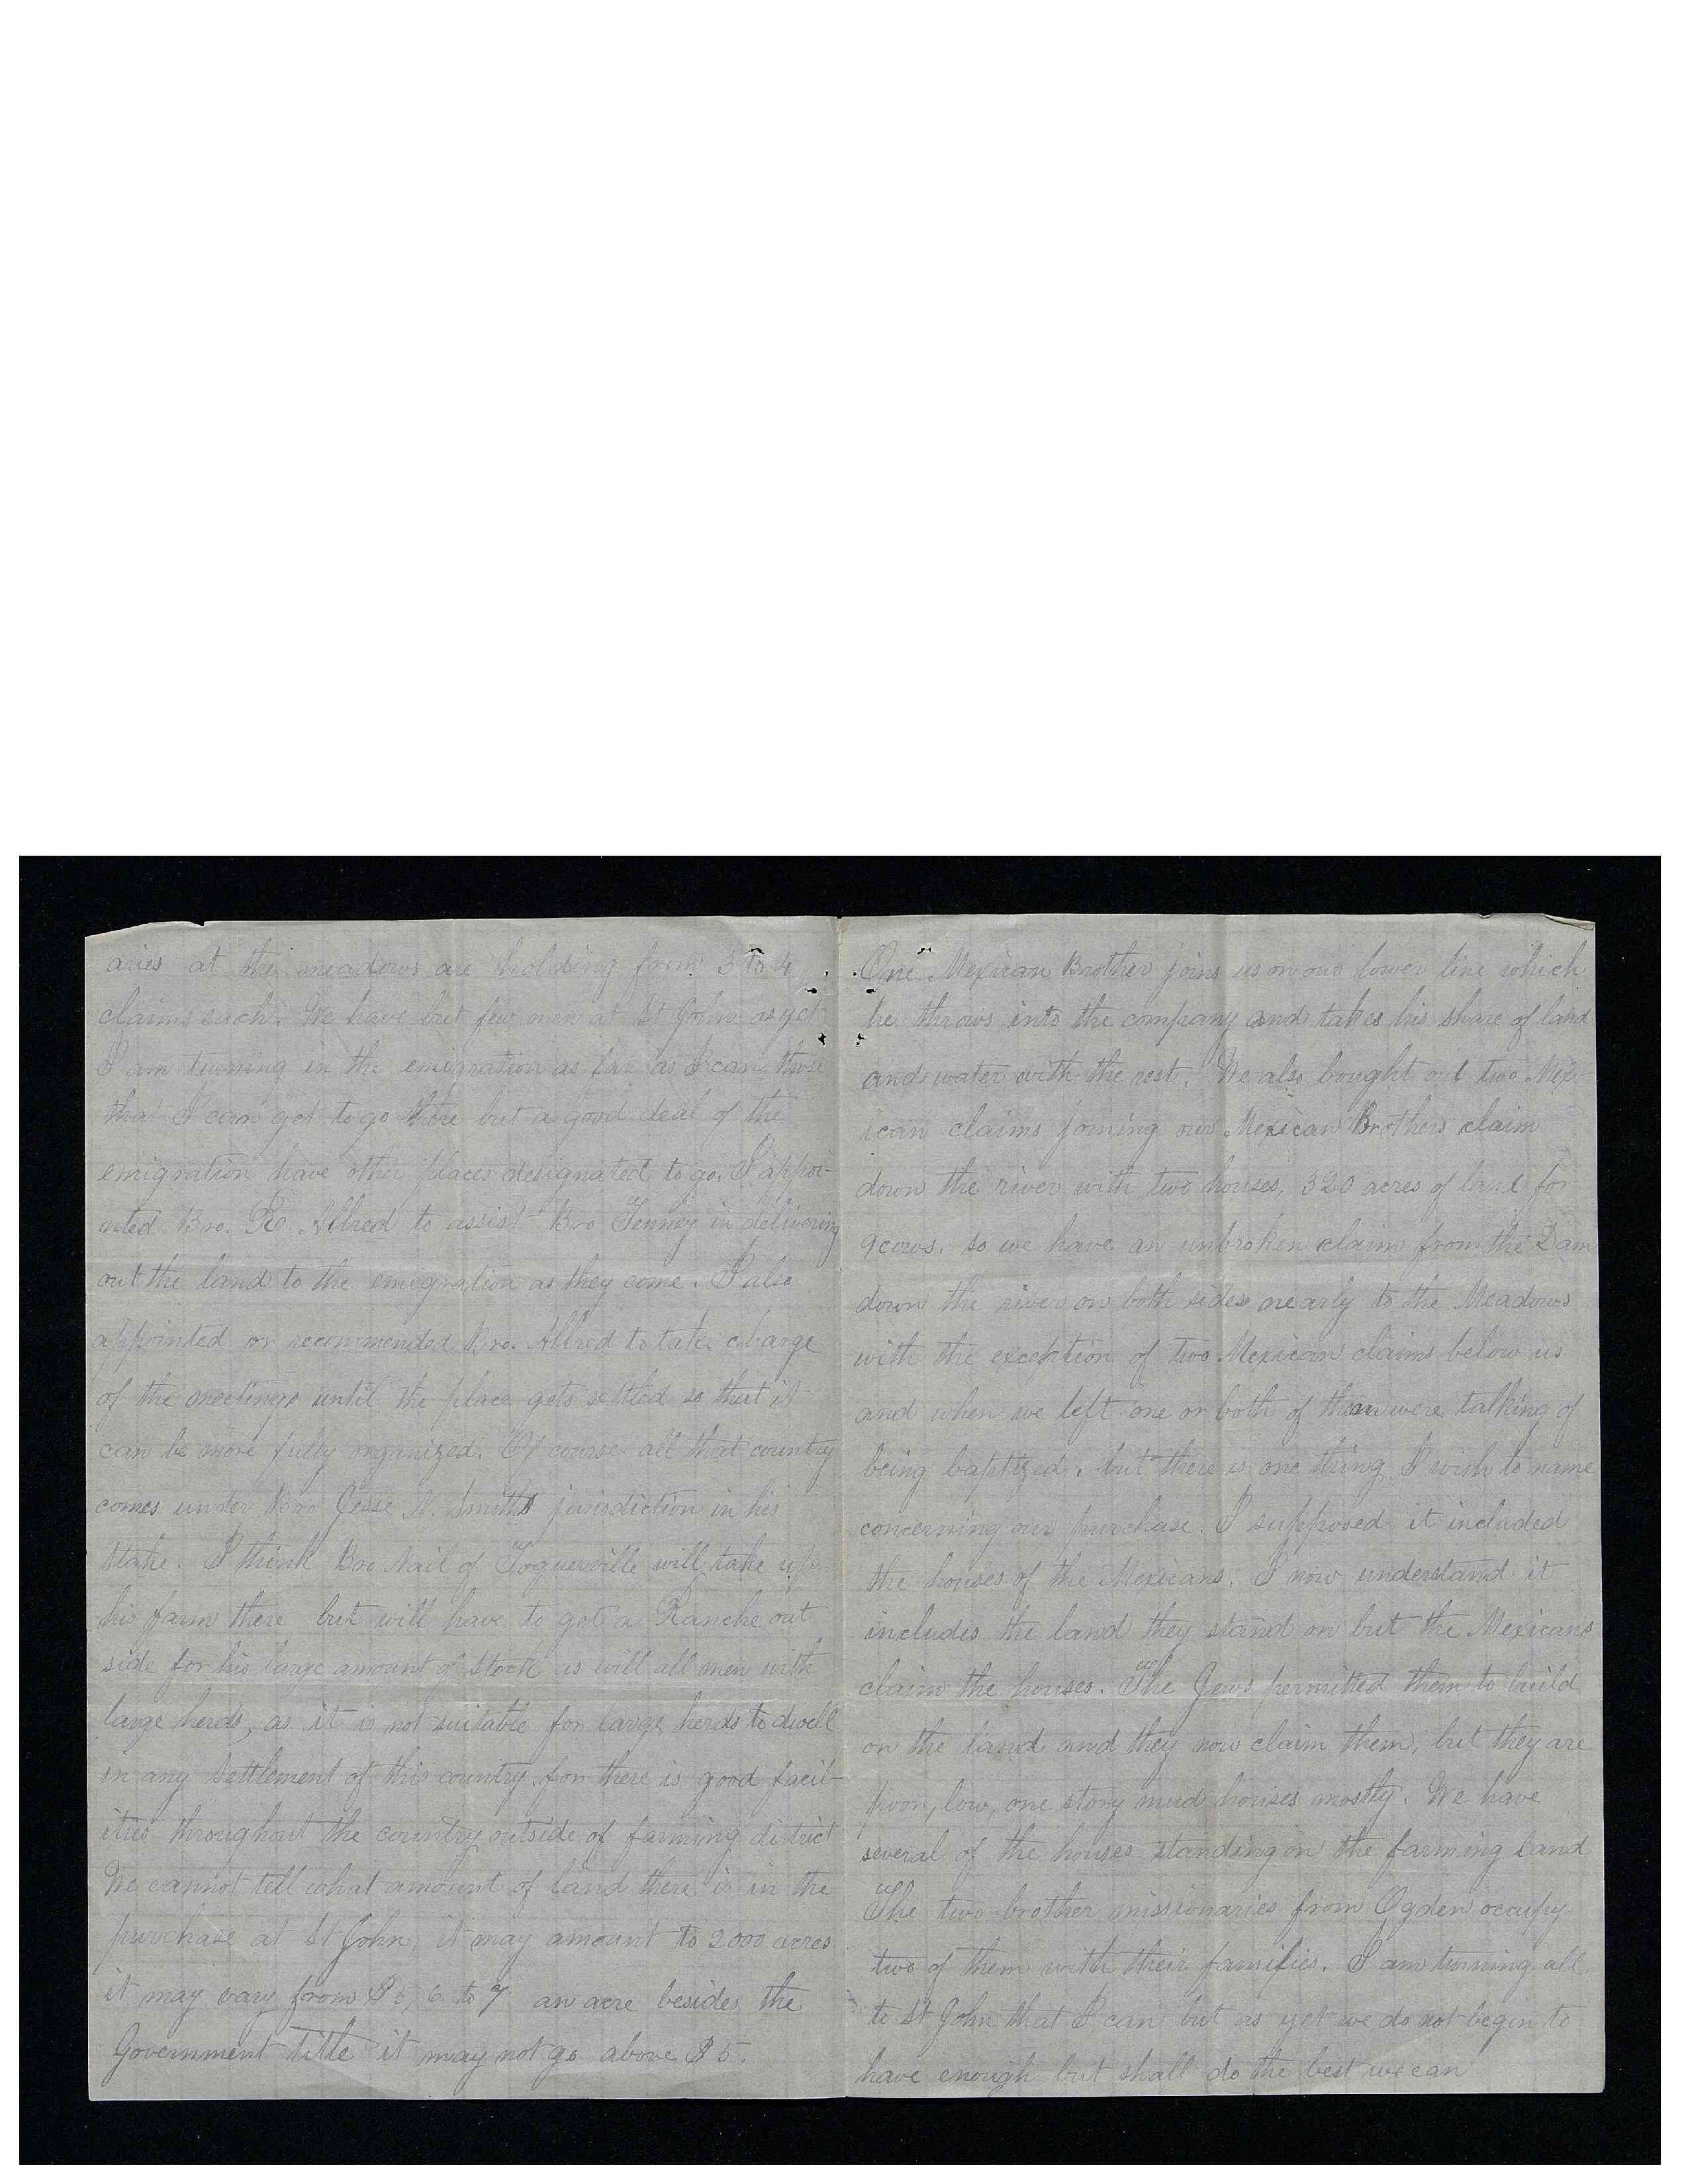 aries at the meadows are holding from 3 to 4
claims each. We have but few men at St John as yet
I am turning in the emigration as far as I can those
that I can get to go there but a good deal of the
emigration have other places designated to go. I appoi-
nted Bro. R. Allred to assist Bro Tenney in delivering
out the land to the emigration as they come. I also
appointed or recommended Bro. Allred to take charge
of the meetings until the place gets settled so that it
can be more fully organized. Of course all that country
comes under Bro Jesse N. Smiths jurisdiction in his
Stake. I think Bro Nail of Toquerville will take up
his farm there but will have to get a Ranche out
side for his large amount of stock as will all men with
large herds, as it is not suitable for large herds to dwell
in any Settlement of this country, for there is good facil-
ities throughout the country outside of farming district
We cannot tell what amount of land there is in the
purchase at St John, it may amount to 2000 acres
it may vary from $5, 6 to 7 an acre besides the
Government title it may not go above $5.
One Mexican Brother joins us on our lower line which
he throws into the company and takes his share of land
and water with the rest. We also bought out two Mex-
ican claims joining our Mexican Brothers claim
down the river with two houses, 320 acres of land for
9 cows. so we have an unbroken claim from the Dam
down the river on both sides nearly to the Meadows
with the exception of two Mexican claims below us
and when we left one or both of them were talking of
being baptized. but there is one thing I wish to name
concerning our purchase. I supposed it included
the houses of the Mexicans. I now understand it
includes the land they stand on but the Mexicans
claim the houses. The Jews permitted them to build
on the land and they now claim them, but they are
poor, low, one story mud houses mostly. We have
several of the houses standing on the farming land
The two brother missionaries from Ogden occupy
two of them with their families. I am turning all
to St John that I can but as yet we do not begin to
have enough but shall do the best we can